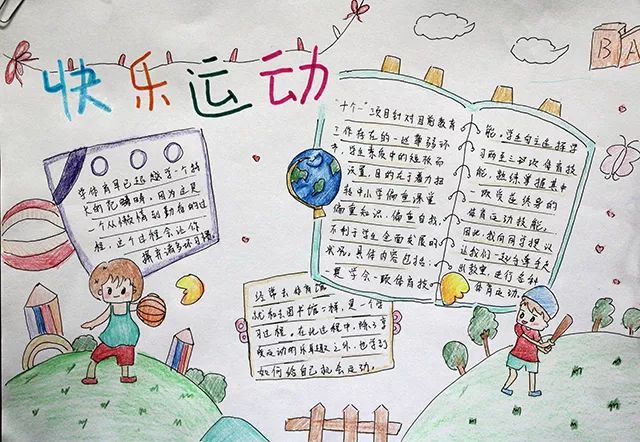 快乐运动
B A
"十个一"项目针对目前教育
工作存在的一些薄弱环
节，学生素质中的短板而
设置，目的在于着力扭
转中小学偏重课堂
偏重知识、偏重自我，
不利于学生全面发展的
状况，具体内容包括：
一是学会一项体育技
能，学生自主选择学
习两至三项次体育技
能，熟练掌握其中
一项受益终身的
体育运动技能。
因此，我向同学提议
让我们一起每天
出教室，进行各种
体育运动。
学体育早已超越了一个特
长的范畴，因为这是
一个从懒惰到勤奋的过
程，这个过程会让你
摒弃许多坏习惯。
经常去体育馆
就和去图书馆一样，是一个学
习过程。在此过程中，除了享
受运动的乐趣之外，也学到
如何给自己找会运动。